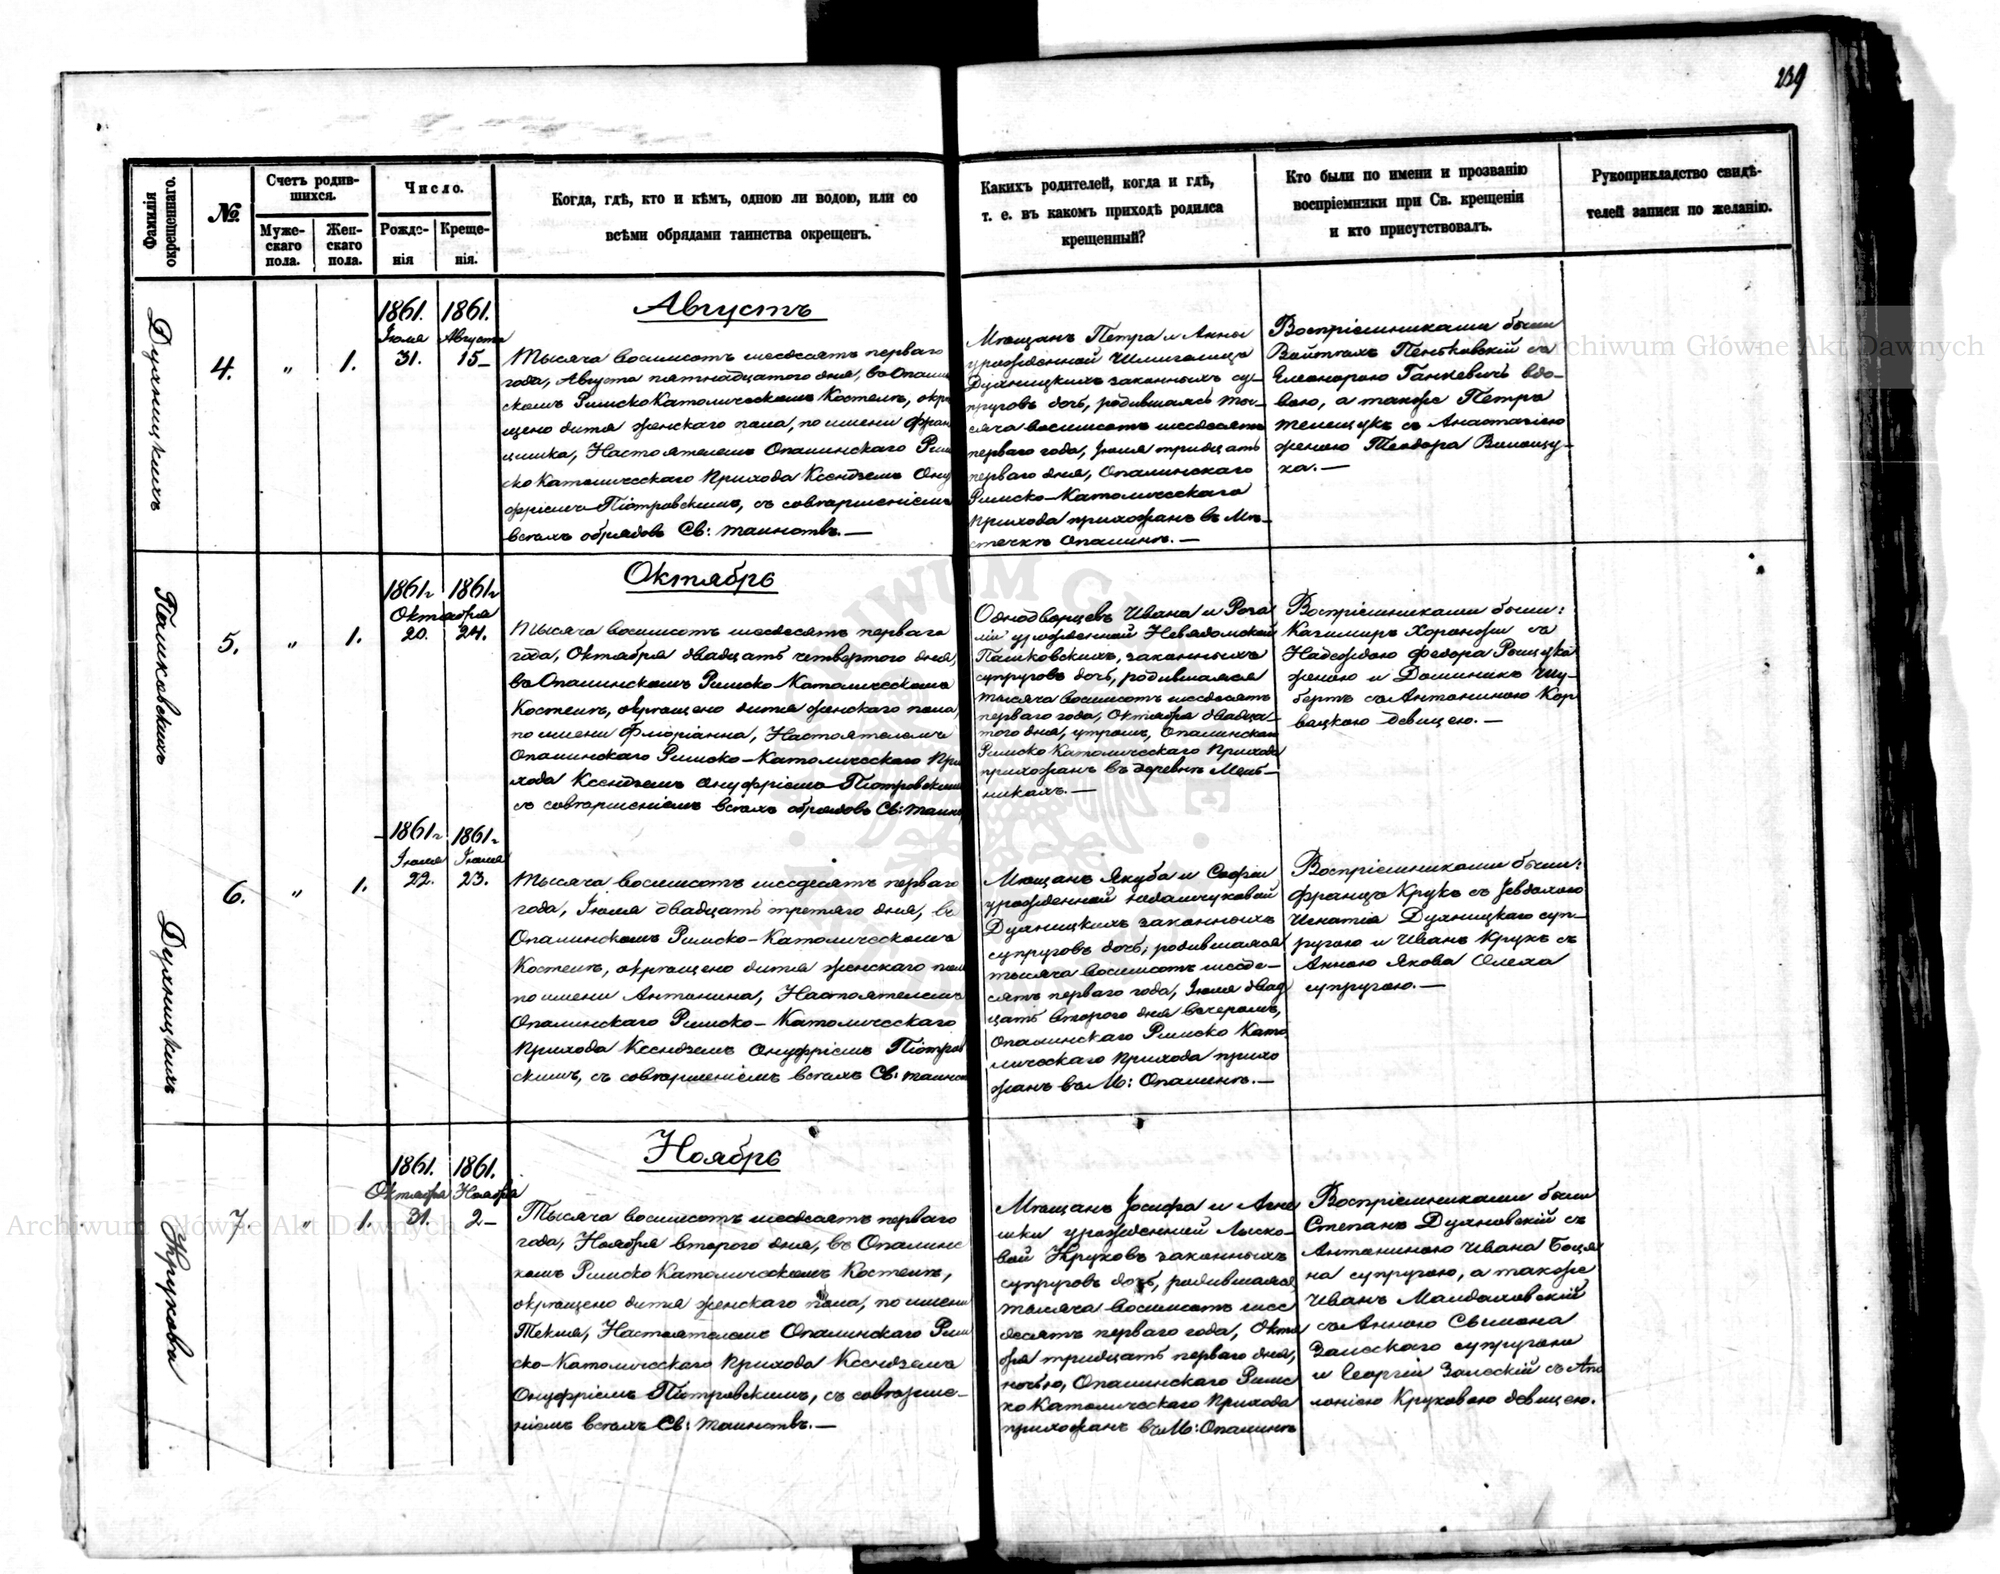 239
Фамилія окрещеннаго.
№
Счетъ родив-
шихся.
Муже-
скаго
пола.
Жен-
скаго
пола.
Число.
Рожде-
нія
Креще-
нія.
Когда, гдѣ, кто и кѣмъ, одною ли водою, или со
всѣми обрядами таинства окрещенъ.
Какихъ родителей, когда и гдѣ,
т. е. въ какомъ приходѣ родился
крещенный?
Кто были по имени и прозванію
воспріемники при Св. крещеніи
и кто присутствовалъ.
Рукоприкладство свидѣ-
телей записи по желанію.
Духницкихъ
4.
"
1.
1861.
Іюля
31.
1861.
Августа
15–
Августъ
Тысяча восемьсотъ шестдесятъ перваго
года, Августа пятнадцатого дня, въ Опалин
скомъ Римско Католическомъ Костелѣ, окре
щено дитя женскаго пола, по имени Фран
цишка, Настоятелемъ Опалинскаго Рим
ско Католическаго Прихода Ксендземъ Ону
фріемъ Піотровскимъ, съ совершеніемъ
всѣхъ обрядовъ Св: таинствъ.—
Мѣщанъ Петра и Анны
урожденной
Духницкихъ законныхъ су-
пруговъ дочь, родившаясь ты-
сяча восемьсотъ шестдесятъ
перваго года, Іюля тридцать
перваго дня, Опалинскаго
Римско-Католическаго
Прихода прихожанъ въ Мѣ-
стечкѣ Опалинѣ.—
Воспріемниками были
Войтѣхъ Пеньковскій съ
Елеонорою Ганкевичъ вдо-
вою, а также Петръ
съ Анастасіею
женою Теодора
ха.—
Пашковскихъ
5.
"
1.
1861г
1861г
Октября
20.
24.
Октябрь
Тысяча восемьсотъ шестдесятъ перваго
года, Октября двадцать четвертого дня,
въ Опалинскомъ Римско-Католическомъ
Костелѣ, окрещено дитя женскаго пола,
по имени Флоріанна, Настоятелемъ
Опалинскаго Римско-Католическаго При
хода Ксендземъ Онуфріемъ Піотровскимъ
съ совершеніемъ всѣхъ обрядовъ Св: таин
Однодворцевъ Ивана и Роза
ліи урожденной Невядомской
Пашковскихъ, законныхъ
супруговъ дочь, родившаяся
тысяча восемьсотъ шестдесятъ
перваго года, Октября двадца-
того дня, утромъ, Опалинскаго
Римско Католическаго Прихода
прихожанъ въ деревнѣ Мель-
никахъ.—
Воспріемниками были:
Казимиръ Хоронжи съ
Надеждою Федора
женою и Доминикъ Шу-
бертъ съ Антониною Кор
вацкою девицею.—
Духницкихъ
6.
"
1.
1861г
Іюля
22.
1861г
Іюля
23.
Тысяча восемьсотъ шестдесятъ перваго
года, Іюля двадцать третяго дня, въ
Опалинскомъ Римско-Католическомъ
Костелѣ, окрещено дитя женскаго пола
по имени Антонина, Настоятелемъ
Опалинскаго Римско-Католическаго
Прихода Ксендземъ Онуфріемъ Піотров
скимъ, съ совершеніемъ всѣхъ Св: таинст
Мѣщанъ Якуба и Софіи
урожденной
Духницкихъ законныхъ
супруговъ дочь, родившаяся
тысяча восемьсотъ шестде-
сятъ перваго года, Іюля двад
цать второго дня вечеромъ,
Опалинскаго Римско Като
лическаго Прихода прихо
жанъ въ М: Опалинѣ.—
Воспріемниками были:
Францъ Крукъ съ Евдокіею
Игнатія Духницкаго суп-
ругою и Иванъ Крукъ съ
Анною Якова Олеха
супругою.—
Крукова
7.
"
1.
1861.
Октября
31.
1861.
Ноября
2–
Ноябрь
Тысяча восемьсотъ шестдесятъ перваго
года, Ноября второго дня, въ Опалинс
комъ Римско Католическомъ Костелѣ,
окрещено дитя женскаго пола, по имени
Текля, Настоятелемъ Опалинскаго Рим
ско-Католическаго Прихода Ксендземъ
Онуфріемъ Піотровскимъ, съ соверше-
ніемъ всѣхъ Св: таинствъ.—
Мѣщанъ Іосифа и Агне
шки урожденной Лыско-
вой Круковъ законныхъ
супруговъ дочь, родившаяся
тысяча восемьсотъ шест
десятъ перваго года, Октя
бря тридцать перваго дня,
ночью, Опалинскаго Римс
ко Католическаго Прихода
прихожанъ въ М: Опалинѣ
Воспріемниками были
Степанъ Духновскій съ
Антониною Ивана Боця
на супругою, а также
Иванъ Малдаховскій
съ Анною Сымона
Залескаго супругою
и Георгій Залескій съ Апо
лоніею Круковою девицею.
Archiwum Główne Akt Dawnych
Archiwum Główne Akt Dawnych